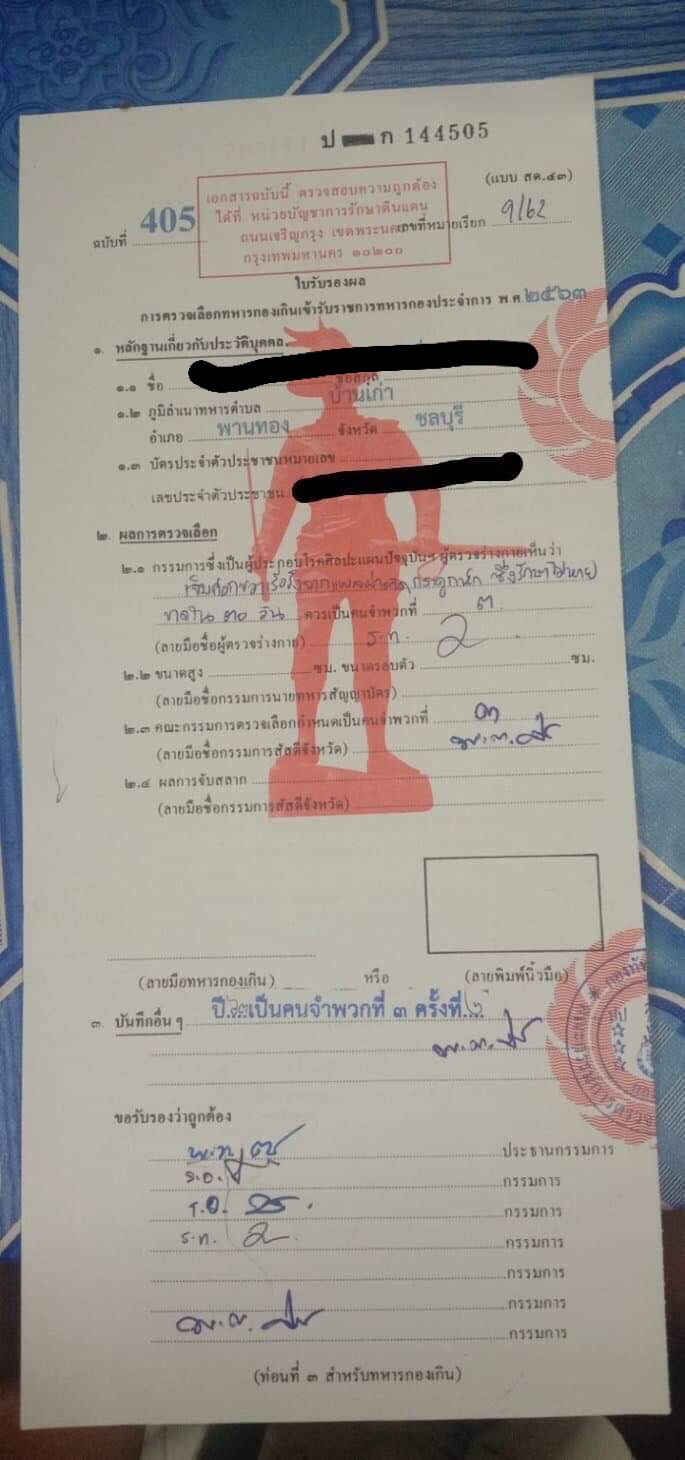 ป ก 144505
(แบบ สด.๔๓)
เอกสารฉบับนี้ ตรวจสอบความถูกต้อง
ได้ที่ หน่วยบัญชาการรักษาดินแดน
ถนนเจริญกรุง เขตพระนคร
กรุงเทพมหานคร ๑๐๒๐๐
ฉบับที่ 405 เลขที่หมายเรียก 9/62
ใบรับรองผล
การตรวจเลือกทหารกองเกินเข้ารับราชการทหารกองประจำการ พ.ศ.๒๕๖๓
๑. หลักฐานเกี่ยวกับประวัติบุคคล
๑.๑ ชื่อ ชื่อสกุล
๑.๒ ภูมิลำเนาทหารตำบล บ้านเก่า
อำเภอ พานทอง จังหวัด ชลบุรี
๑.๓ บัตรประจำตัวประชาชนหมายเลข
เลขประจำตัวประชาชน
๒. ผลการตรวจเลือก
๒.๑ กรรมการซึ่งเป็นผู้ประกอบโรคศิลปะแผนปัจจุบันฯ ผู้ตรวจร่างกายเห็นว่า
กระดูกหัก ซึ่งรักษาไม่หาย
ภายใน ๓๐ วัน ควรเป็นคนจำพวกที่ ๓
(ลายมือชื่อผู้ตรวจร่างกาย) ร.ท.
๒.๒ ขนาดสูง ซม. ขนาดรอบตัว ซม.
(ลายมือชื่อกรรมการนายทหารสัญญาบัตร)
๒.๓ คณะกรรมการตรวจเลือกกำหนดเป็นคนจำพวกที่ ๓
(ลายมือชื่อกรรมการสัสดีจังหวัด)
๒.๔ ผลการจับสลาก
(ลายมือชื่อกรรมการสัสดีจังหวัด)
(ลายมือทหารกองเกิน) หรือ (ลายพิมพ์นิ้วมือ)
๓. บันทึกอื่น ๆ ปี ๖๓ เป็นคนจำพวกที่ ๓ ครั้งที่ ๒
ขอรับรองว่าถูกต้อง
พ.ท. ประธานกรรมการ
ร.อ. กรรมการ
ร.อ. กรรมการ
ร.ท. กรรมการ
กรรมการ
กรรมการ
กรรมการ
(ท่อนที่ ๓ สำหรับทหารกองเกิน)